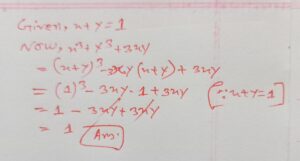 Given, x+y=1
Now, x³+y³+3xy
= (x+y)³-3xy(x+y)+3xy
= (1)³-3xy.1+3xy [∵x+y=1]
= 1-3xy+3xy
= 1 Ans.